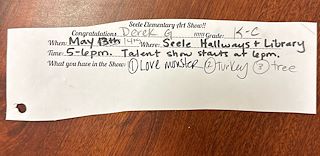 Seele Elementary Art Show!!
Congratulations Derek G K-C
When: May 13th Where: Seele Hallways + Library
Time: 5-6pm. Talent show starts at 6pm.
What you have in the Show: ① Love monster ② turkey ③ tree